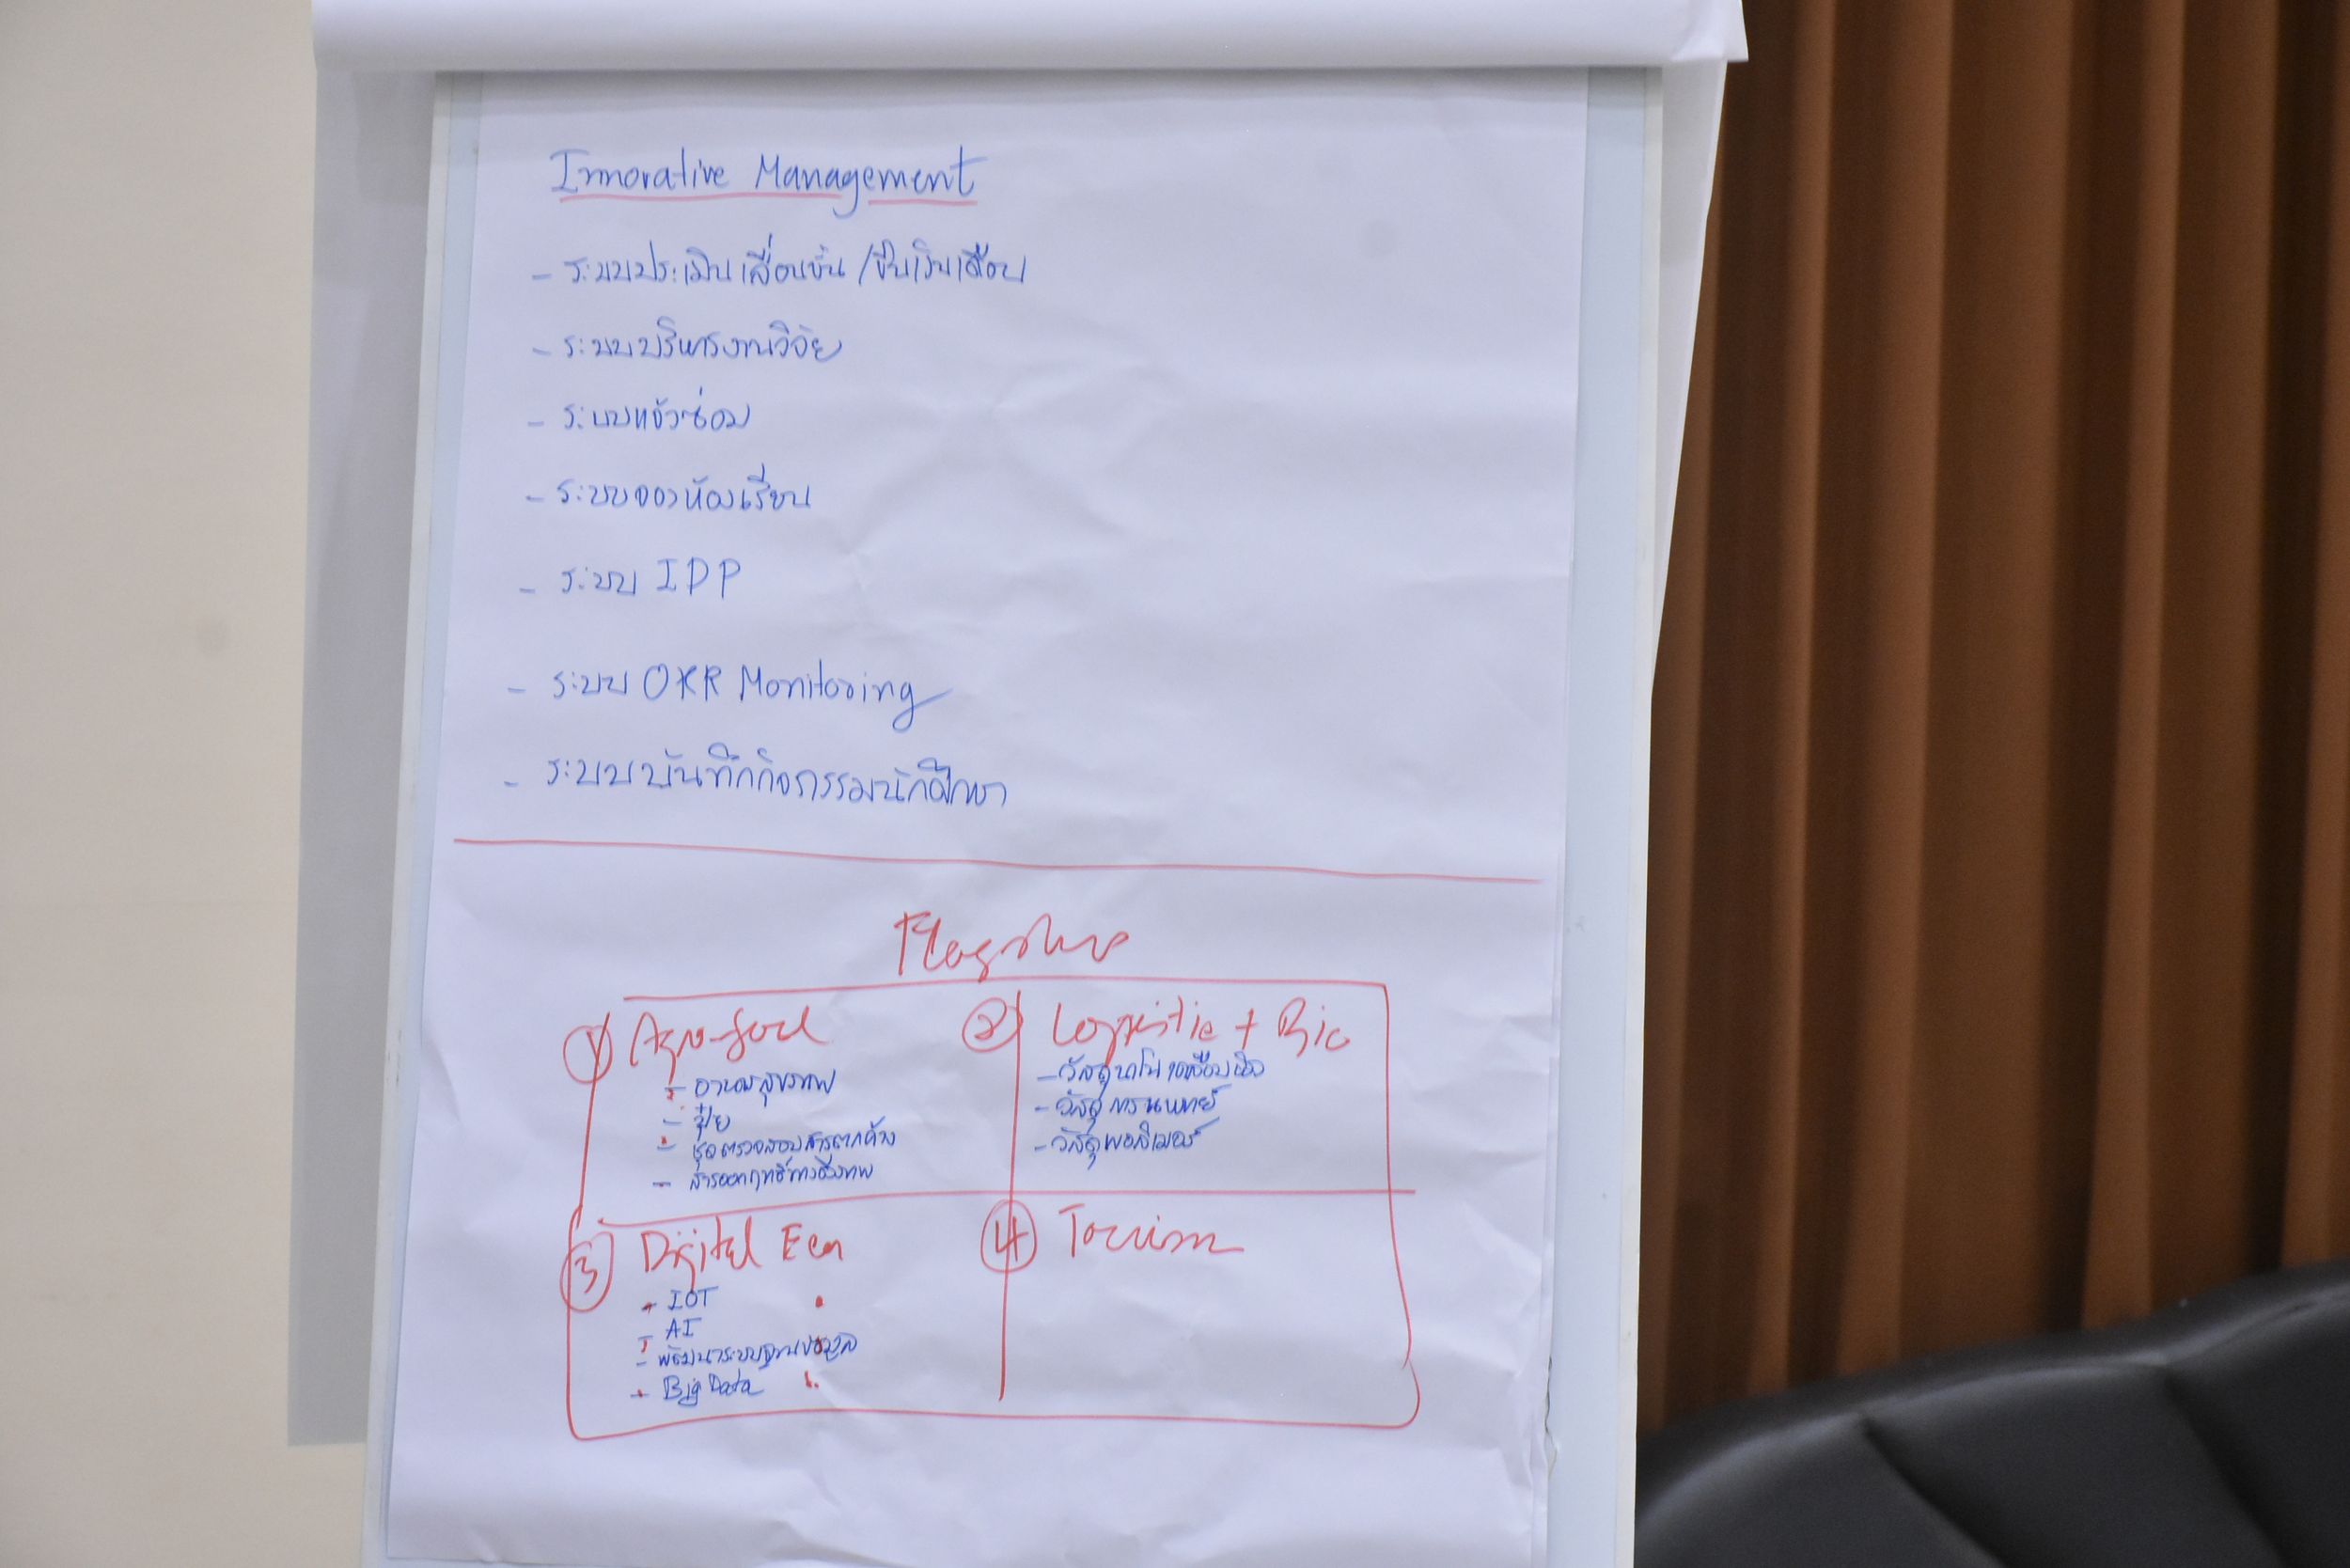 Innovative Management
- ระบบประเมินเลื่อนขั้น/ขึ้นเงินเดือน
- ระบบบริหารงานวิจัย
- ระบบแจ้งซ่อม
- ระบบจองห้องเรียน
- ระบบ IDP
- ระบบ OKR Monitoring
- ระบบบันทึกกิจกรรมนักศึกษา
Flagship
1 Agro-food
- อาหารสุขภาพ
- ปุ๋ย
- ชุดตรวจสอบสารตกค้าง
- สารออกฤทธิ์ทางชีวภาพ
2 Logistic + Bio
- วัสดุนาโนเคลือบ
- วัสดุการแพทย์
- วัสดุพอลิเมอร์
3 Digital Econ
- IOT
- AI
- พัฒนาระบบฐานข้อมูล
- Big Data
4 Tourism